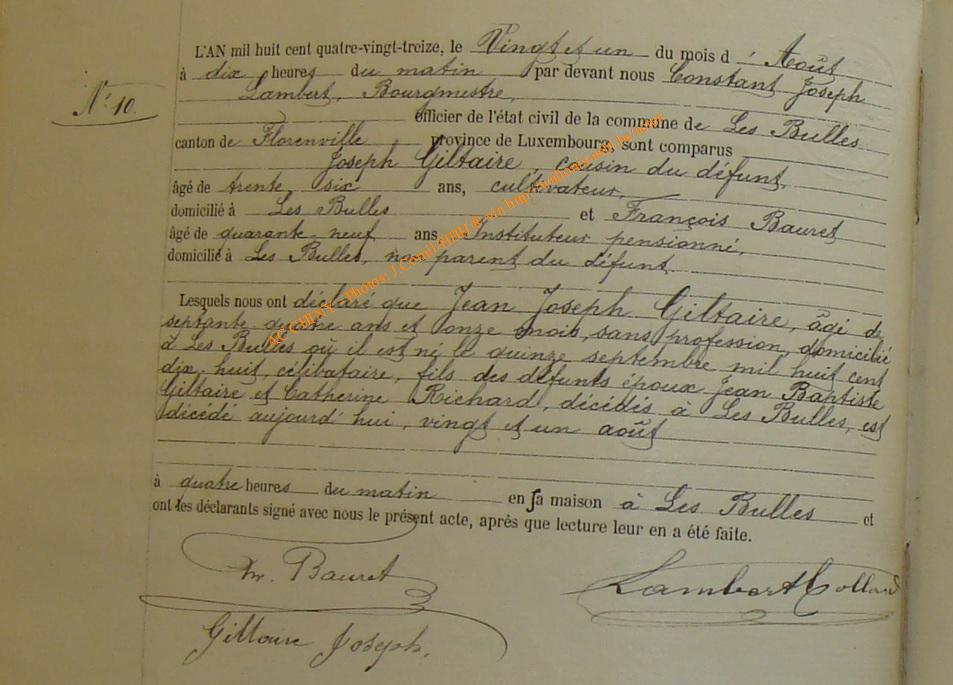 L'AN mil huit cent quatre-vingt-treize, le Vingt et un du mois d' Août
à dix heures du matin par devant nous Constant Joseph
Lambert, Bourgmestre,
N° 10.
officier de l'état civil de la commune de Les Bulles
canton de Florenville province de Luxembourg sont comparus
Joseph Giltaire, cousin du défunt,
âgé de trente six ans, cultivateur,
domicilié à Les Bulles et François Bauret
âgé de quarante neuf ans Instituteur pensionné,
domicilié à Les Bulles, non parent du défunt.
Lesquels nous ont déclaré que Jean Joseph Giltaire, âgé de
septante quatre ans et onze mois, sans profession, domicilié
à Les Bulles où il est né le quinze septembre mil huit cent
dix huit, célibataire, fils des défunts époux Jean Baptiste
Giltaire et Catherine Richard, décédés à Les Bulles, est
décédé aujourd'hui, vingt et un août
à quatre heures du matin en sa maison à Les Bulles et
ont les déclarants signé avec nous le présent acte, après que lecture leur en a été faite.
Bauret
Lambert Collard
Giltaire Joseph.